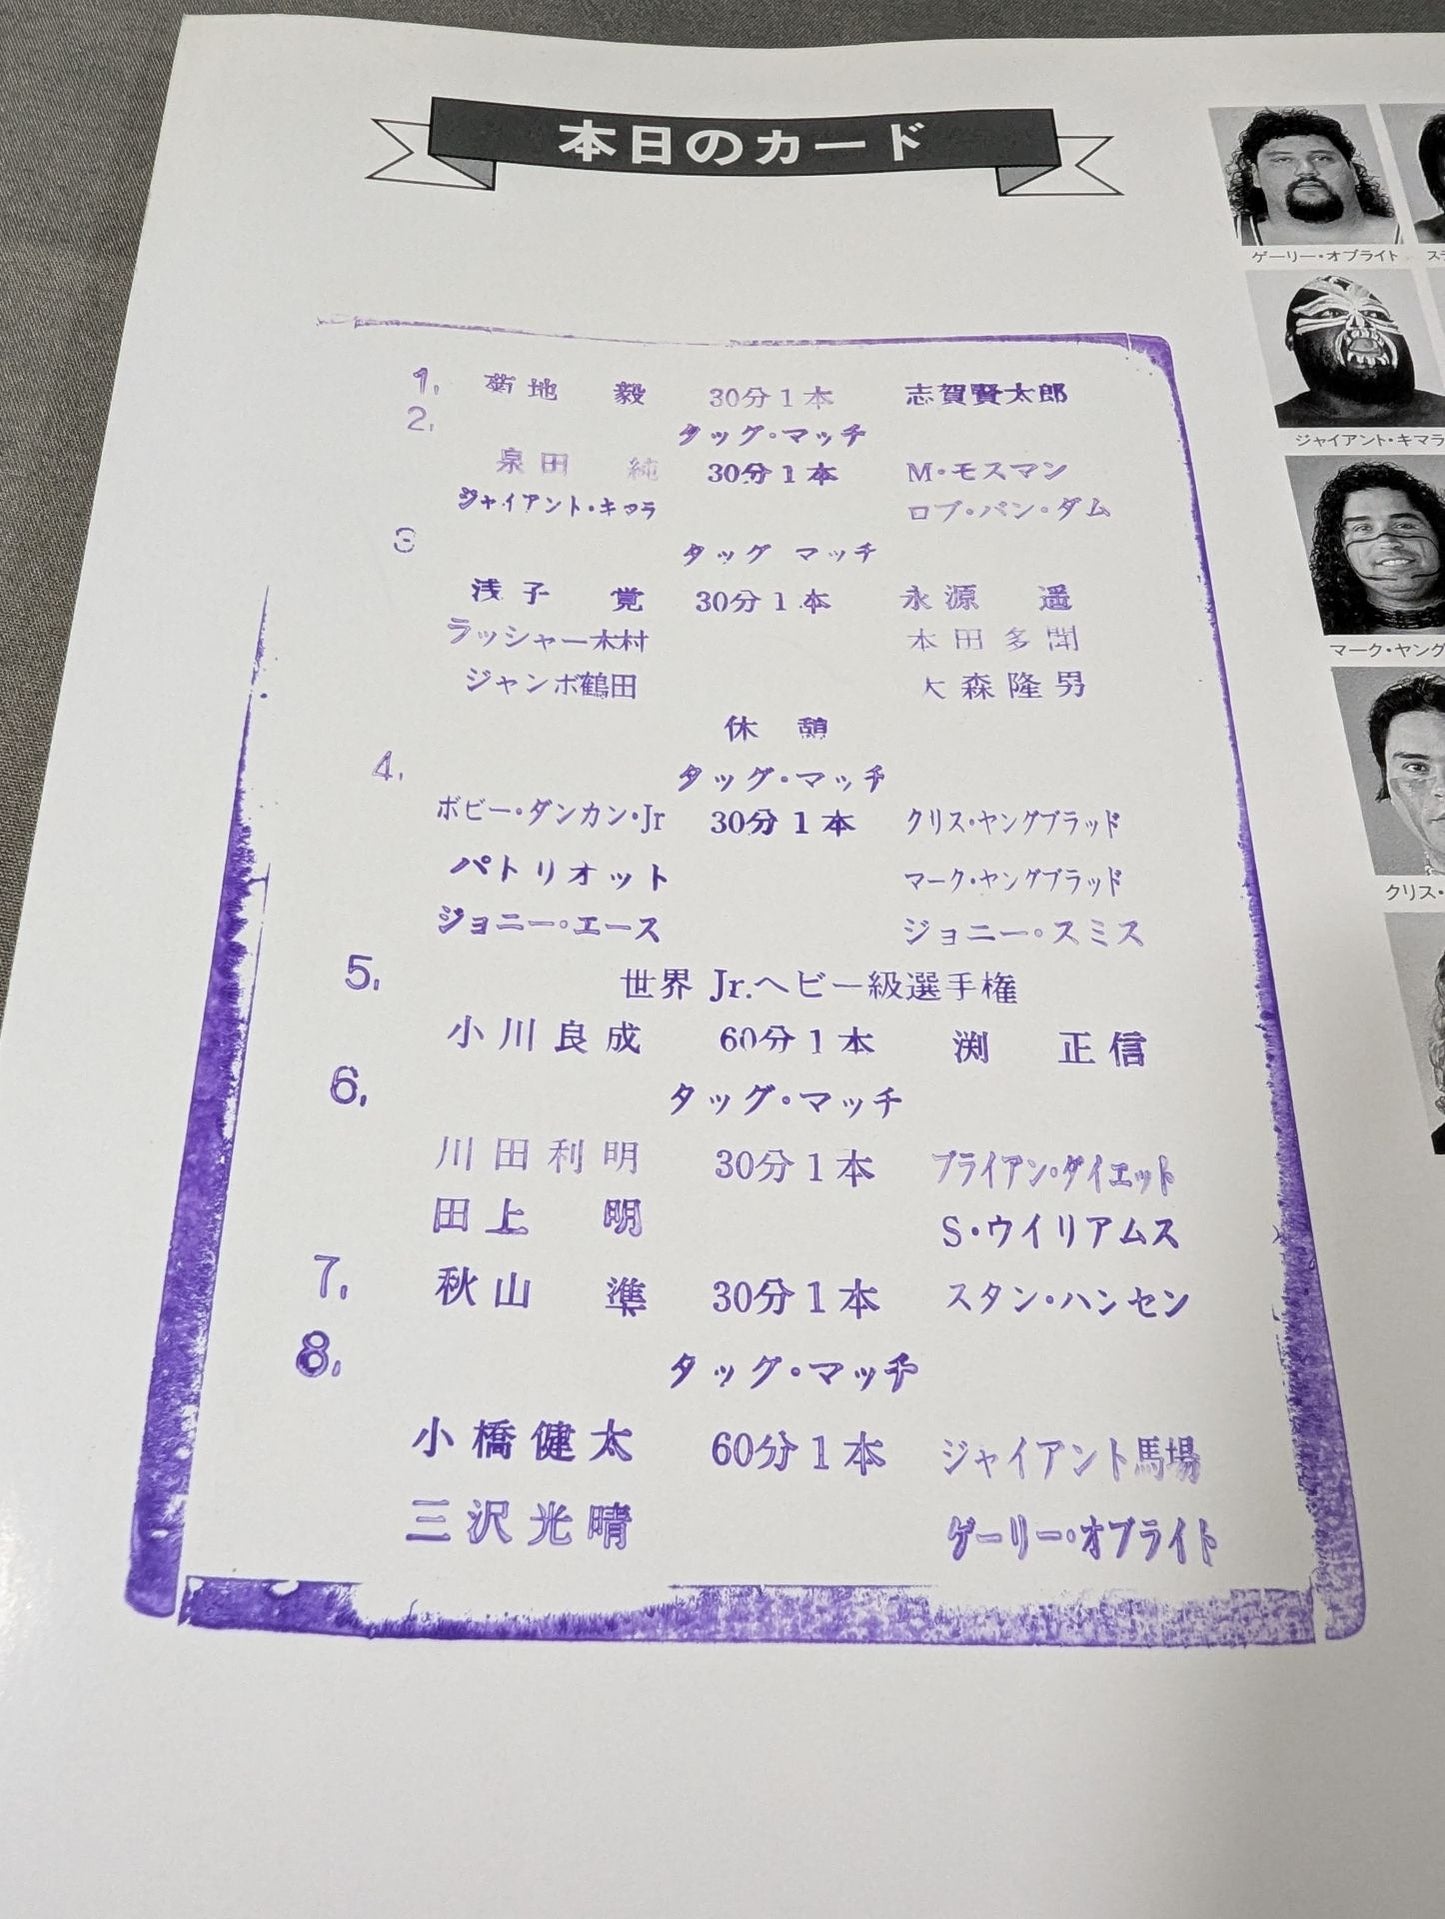 本日のカード
1. 菊地 毅 30分1本 志賀賢太郎
2. タッグ・マッチ
泉田 純 30分1本 M・モスマン
ジャイアント・キマラ ロブ・バン・ダム
3 タッグ マッチ
浅子 覚 30分1本 永源 遥
ラッシャー木村 本田多聞
ジャンボ鶴田 大森隆男
休憩
4. タッグ・マッチ
ボビー・ダンカン・Jr 30分1本 クリス・ヤングブラッド
パトリオット マーク・ヤングブラッド
ジョニー・エース ジョニー・スミス
5. 世界 Jr.ヘビー級選手権
小川良成 60分1本 渕 正信
6. タッグ・マッチ
川田利明 30分1本 ブライアン・ダイエット
田上 明 S・ウイリアムス
7. 秋山 準 30分1本 スタン・ハンセン
8. タッグ・マッチ
小橋健太 60分1本 ジャイアント馬場
三沢光晴 ゲーリー・オブライト
ゲーリー・オブライト
ジャイアント・キマラ
マーク・ヤング
クリス・